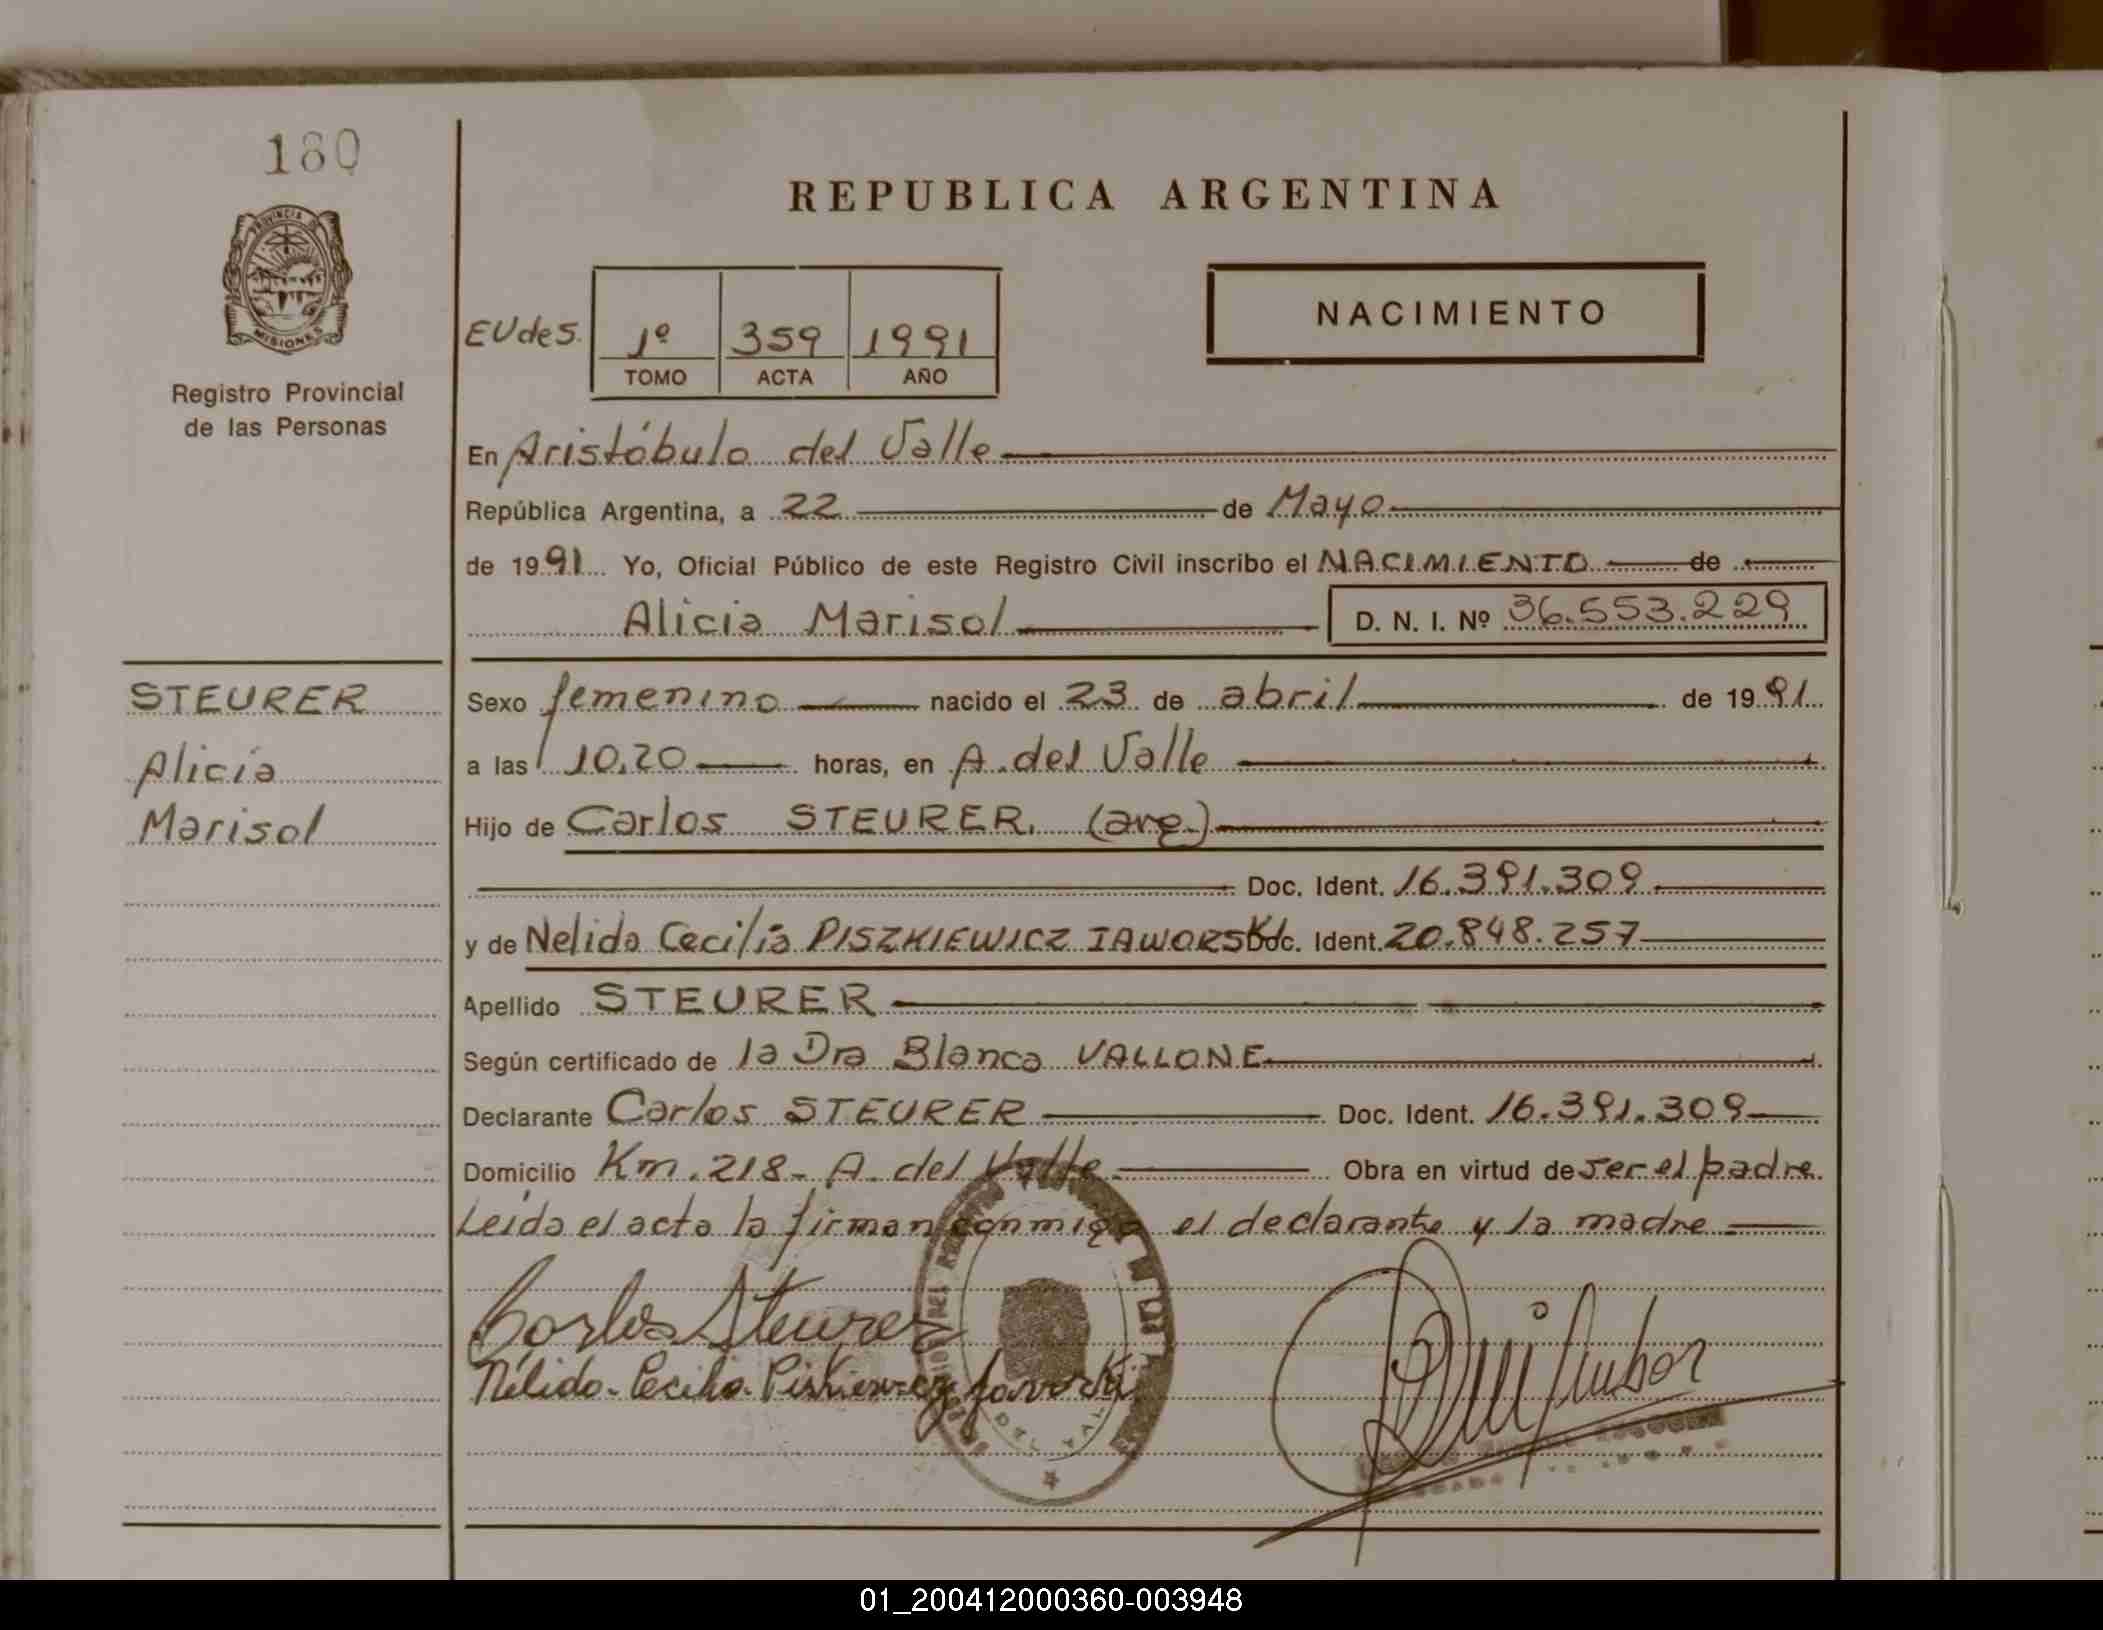 180
PROVINCIA D
MISIONES
Registro Provincial
de las Personas
STEURER
Alicia
Marisol
REPUBLICA ARGENTINA
EUdeS.
1º 359 1991
TOMO ACTA AÑO
NACIMIENTO
En Aristóbulo del Valle
República Argentina, a 22 de Mayo
de 1991 Yo, Oficial Público de este Registro Civil inscribo el NACIMIENTO de
Alicia Marisol D. N. I. Nº 36.553.229
Sexo femenino nacido el 23 de abril de 1991
a las 10,20 horas, en A. del Valle
Hijo de Carlos STEURER. (arg.)
Doc. Ident. 16.391.309
y de Nelida Cecilia PISZKIEWICZ IAWORSKI Doc. Ident. 20.848.257
Apellido STEURER
Según certificado de la Dra Blanca VALLONE
Declarante Carlos STEURER Doc. Ident. 16.391.309
Domicilio Km. 218- A. del Valle Obra en virtud de ser el padre.
Leída el acta la firman conmigo el declarante y la madre
Carlos Steurer
Nélida Cecilia
01_200412000360-003948